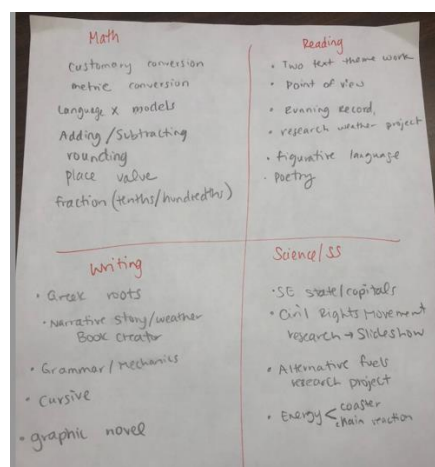 Math
customary conversion
metric conversion
Language x models
Adding/Subtracting
rounding
place value
fraction (tenths/hundredths)
Reading
• Two text theme work
• Point of view
• Running Record,
• research weather project
• figurative language
• Poetry
Writing
• Greek roots
• Narrative story/weather
Book creator
• Grammar/Mechanics
• Cursive
• graphic novel
Science/SS
• SE state/capitals
• Civil Rights Movement
research → Slideshow
• Alternative fuels
research project
• Energy < coaster
chain reaction